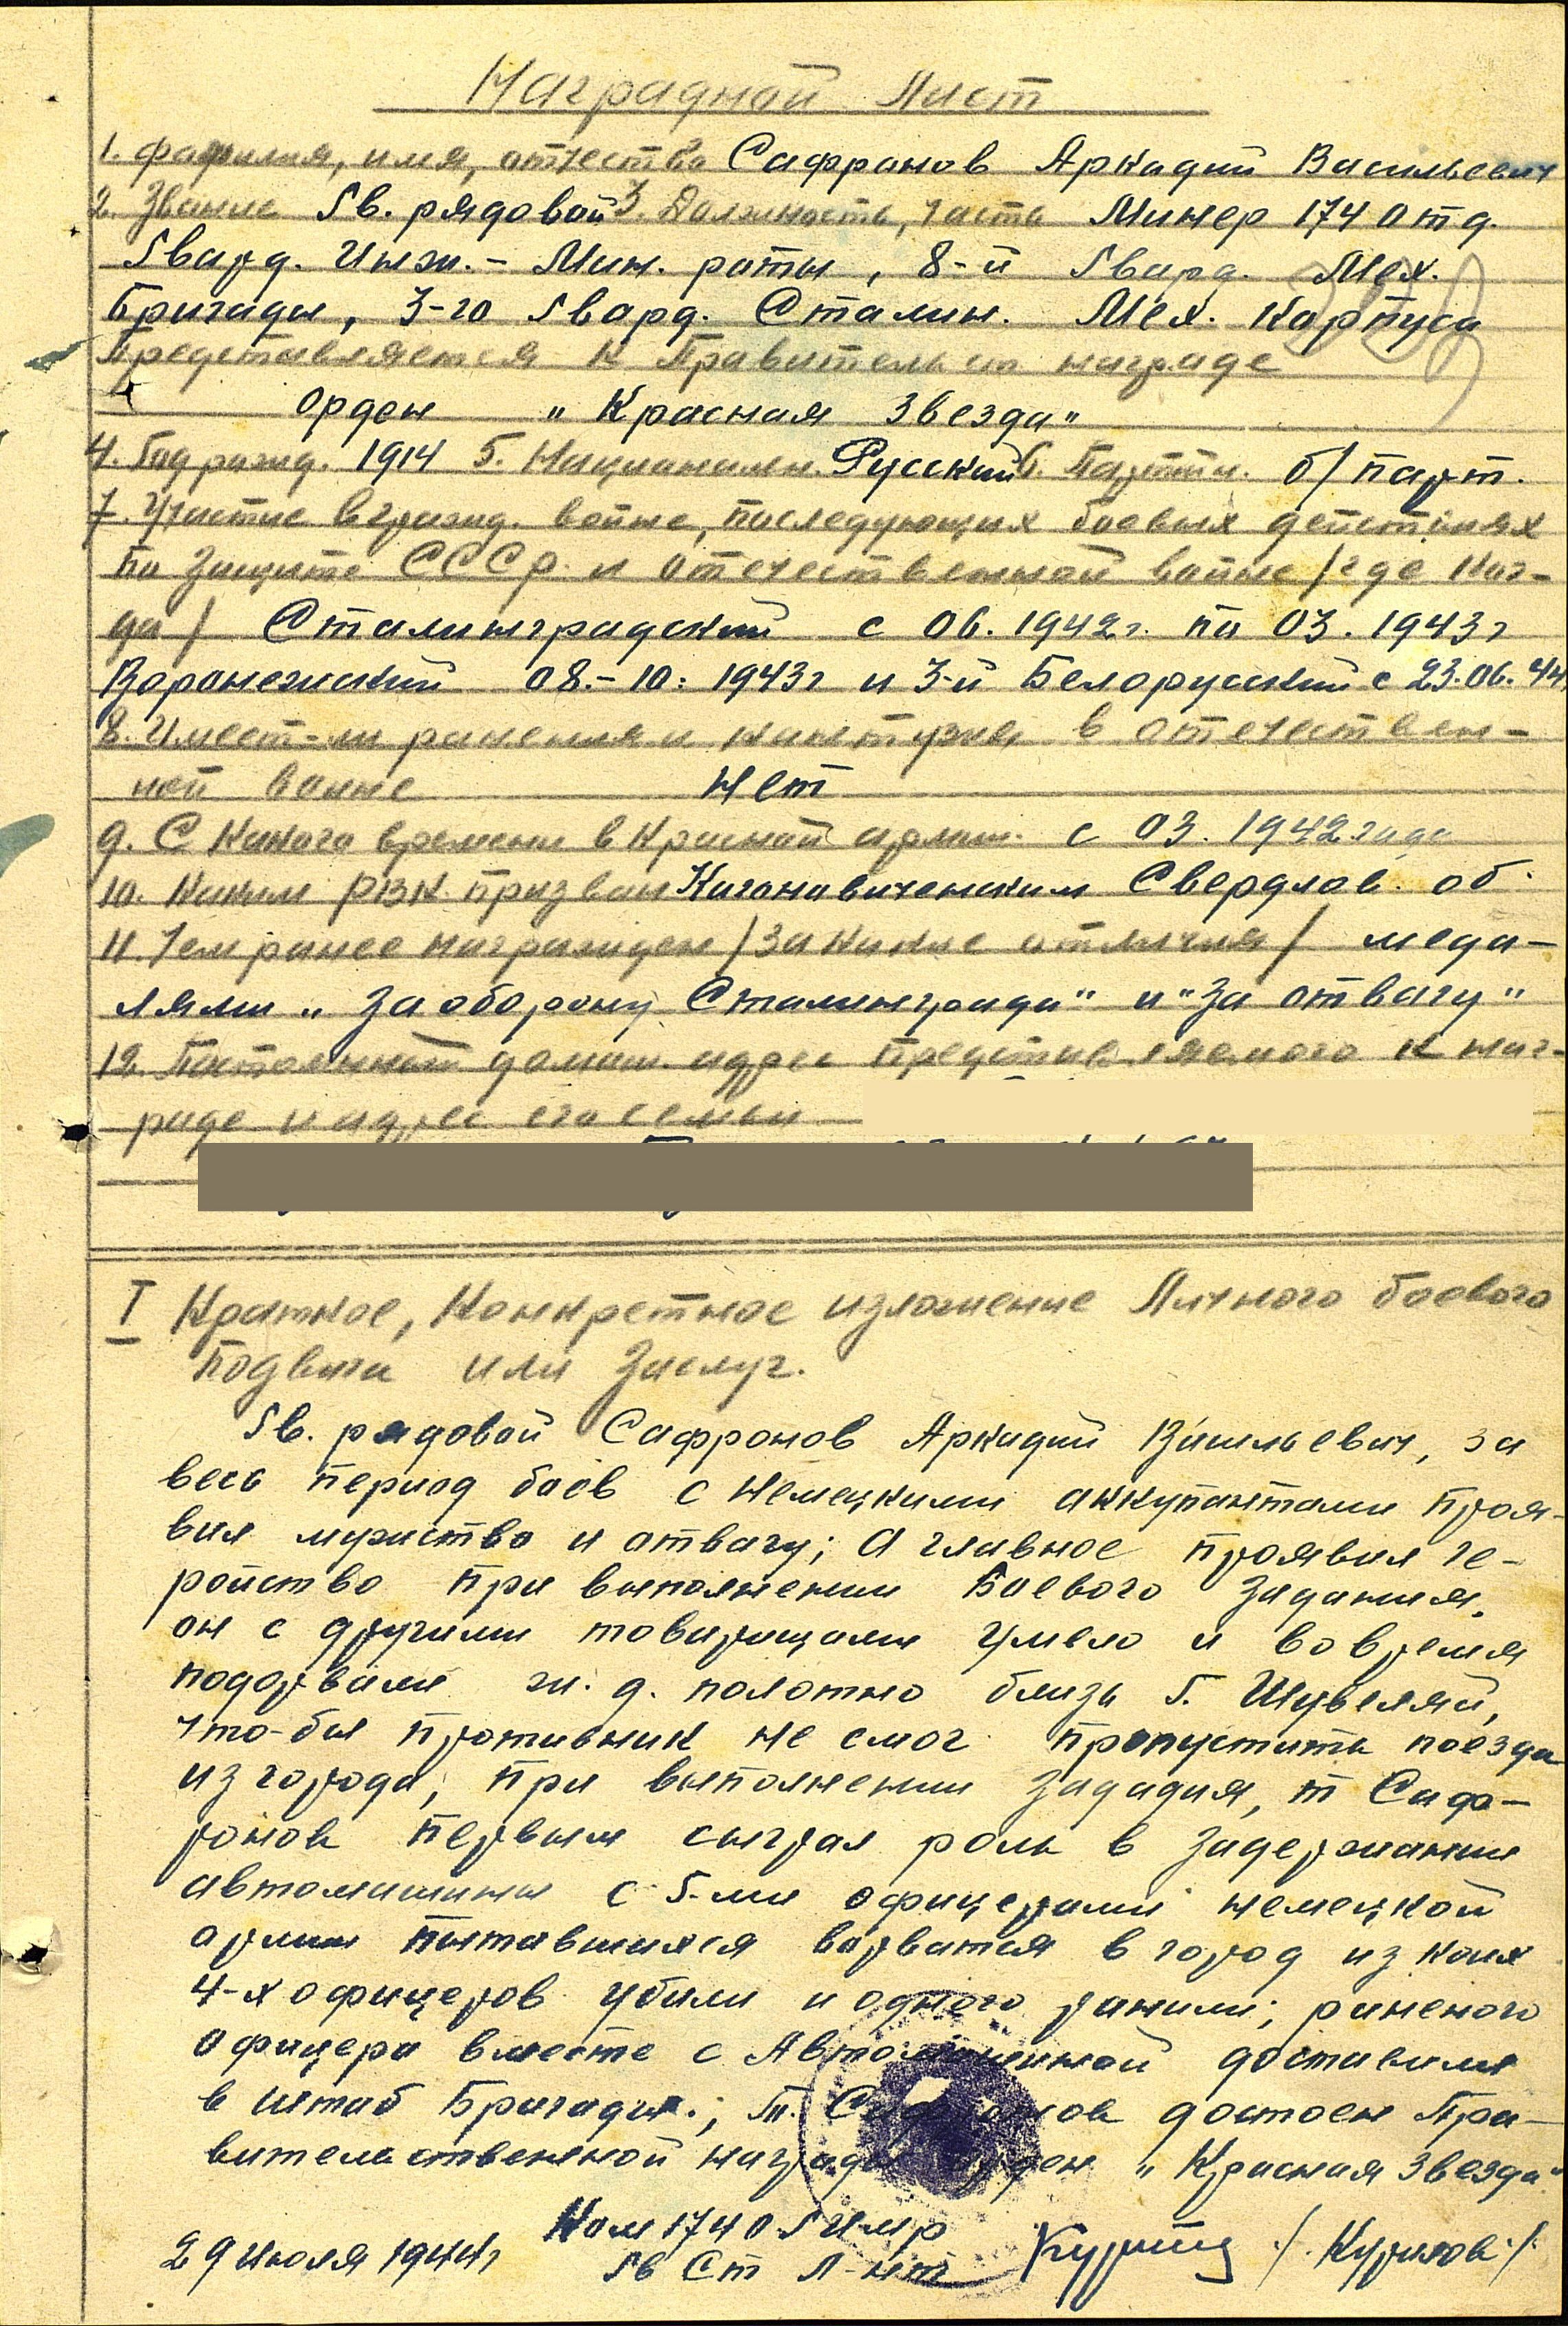 Наградной Лист
1. фамилия, имя, отчество Сафронов Аркадий Васильевич
2. Звание Гв. рядовой 3. Должность, часть Минер 174 отд.
Гвард. Инж. - Мин. роты, 8-й Гвард. Мех.
Бригады, 3-го Гвард. Сталин. Мех. Корпуса
Представляется к Правительст награде
орден „Красная Звезда"
4. Год рожд. 1914 5. Националн. Русский 6. Партти. б/парт.
7. Участие в гражд. войне, последующих боевых действиях
по защите СССР. и отечественной войне /где ког-
да/ Сталинградский с 06. 1942г. по 03. 1943г
Воронежский 08.-10: 1943г и 3-й Белорусский с 23.06.44
8. Имеет-ли ранения и контузии в отечествен-
ной войне нет
9. С какого времени в Красной армии. с 03. 1942 года
10. Каким РВК призван Кагановиченским Свердлов. об.
11 Чем ранее награжден /за какие отличия/ меда-
лями „За оборону Сталинграда" и "За отвагу"
12. Постоянный домаш. адрес представляемого к наг-
раде и адрес его семьи
I Краткое, Конкретное изложение Личного боевого
подвига или Заслуг.
Гв. рядовой Сафронов Аркадий Васильевич, за
весь период боёв с немецкими аккупантами проя-
вил мужество и отвагу; А главное проявил ге-
ройство при выполнении Боевого Задания.
он с другими товарищами умело и вовремя
подорвали ж. д. полотно близь г. Шувеляй,
что-бы противник не смог пропустить поезда
из города, при выполнении зададия, т Сафо-
ронов первым сыграл роль в задержании
автомашины с 5-ми офицерами немецкой
армии пытавшихся ворватся в город из коих
4-х офицеров убили и одного ранили; раненого
офицера вместе с Автомашиной доставили
в штаб Бригады.; т. Сафронов достоен Пра-
вительственной награды орден „Красная Звезда"
Ком 174 О Г И-М р
29 июля 1944г Гв Ст Л-нт /. Курилов /.